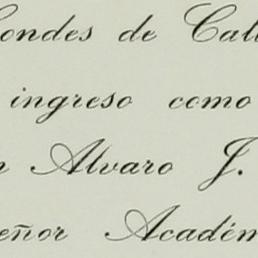 ondes de Cal
ingreso como
n Alvaro J.
eñor Académ